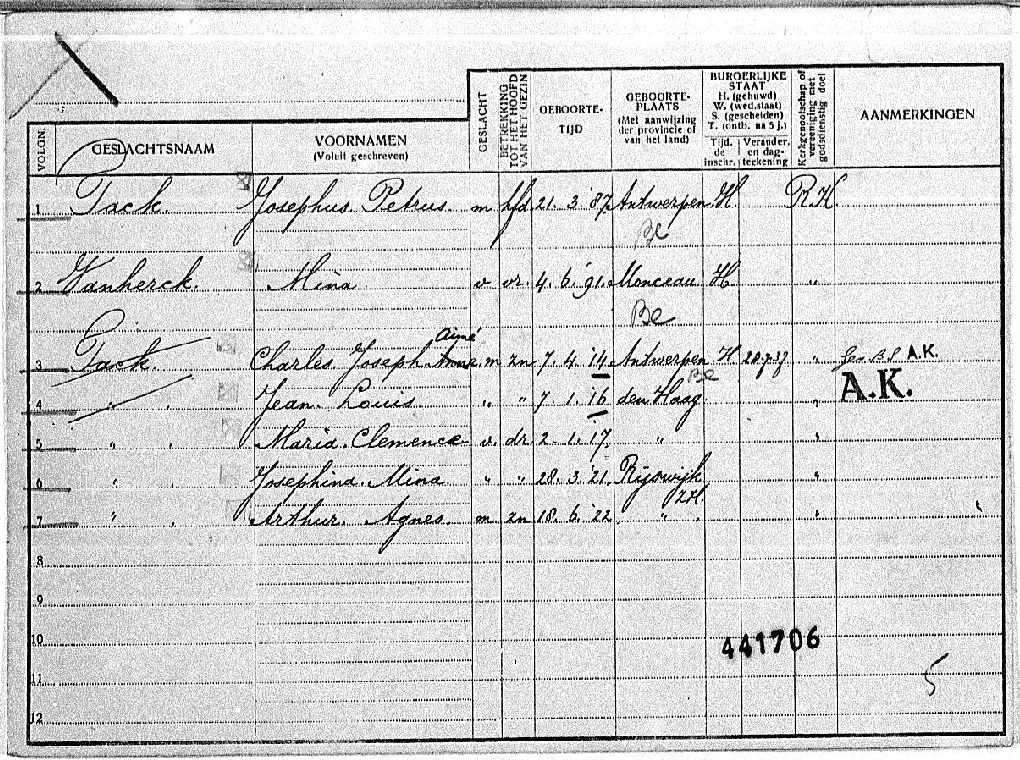 VOLGN.
GESLACHTSNAAM
VOORNAMEN
(Voluit geschreven)
GESLACHT
BETREKKING
TOT HET HOOFD
VAN HET GEZIN
GEBOORTE-
TIJD
GEBOORTE-
PLAATS
(Met aanwijzing
der provincie of
van het land)
BURGERLIJKE
STAAT
H. (gehuwd)
W. (wed.staat)
S. (gescheiden)
T. (ontb. na 5 j.)
Tijd. de inschr.
Verander. en dag-teekening
Kerkgenootschap of
vereeniging met
godsdienstig doel
AANMERKINGEN
1 Pack. Josephus Petrus m hfd 21. 3. '87 Antwerpen H R.K.
Be
2 Vanherck. Mina v vr. 4. 6. '91. Monceau H "
Be
Aimé
3 Pack. Charles Joseph m zn 7. 4. '14 Antwerpen H 28.7.37 " A.K.
Be
4 " . Jean Louis " " 7 1. 16 den Haag " A.K.
5 " . Maria Clemence v. dr 2 1. 17. " "
6 " . Josephina Mina " " 28. 3. 21. Rijswijk "
ZH.
7 " . Arthur. Agnes. m zn 18. 6. '22. " "
8
9
10
441706
11
5
12